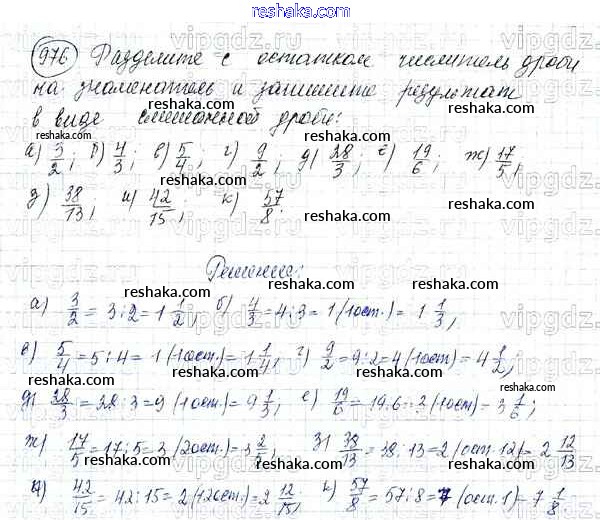 976 Разделите с остатком числитель дроби
на знаменатель и запишите результат
в виде смешанной дроби:
а) 3/2; б) 4/3; в) 5/4; г) 9/2; д) 28/3; е) 19/6; ж) 17/5;
з) 38/13; и) 42/15; к) 57/8.
Решение:
а) 3/2 = 3:2 = 1 1/2; б) 4/3 = 4:3 = 1 (1 ост.) = 1 1/3;
в) 5/4 = 5:4 = 1 (1 ост.) = 1 1/4; г) 9/2 = 9:2 = 4 (1 ост) = 4 1/2;
д) 28/3 = 28:3 = 9 (1 ост.) = 9 1/3; е) 19/6 = 19:6 = 3 (1 ост) = 3 1/6;
ж) 17/5 = 17:5 = 3 (2 ост.) = 3 2/5; з) 38/13 = 38:13 = 2 (ост. 12) = 2 12/13
и) 42/15 = 42:15 = 2 (12 ост.) = 2 12/15; к) 57/8 = 57:8 = 7 (ост. 1) = 7 1/8
reshaka.com
vipgdz.com